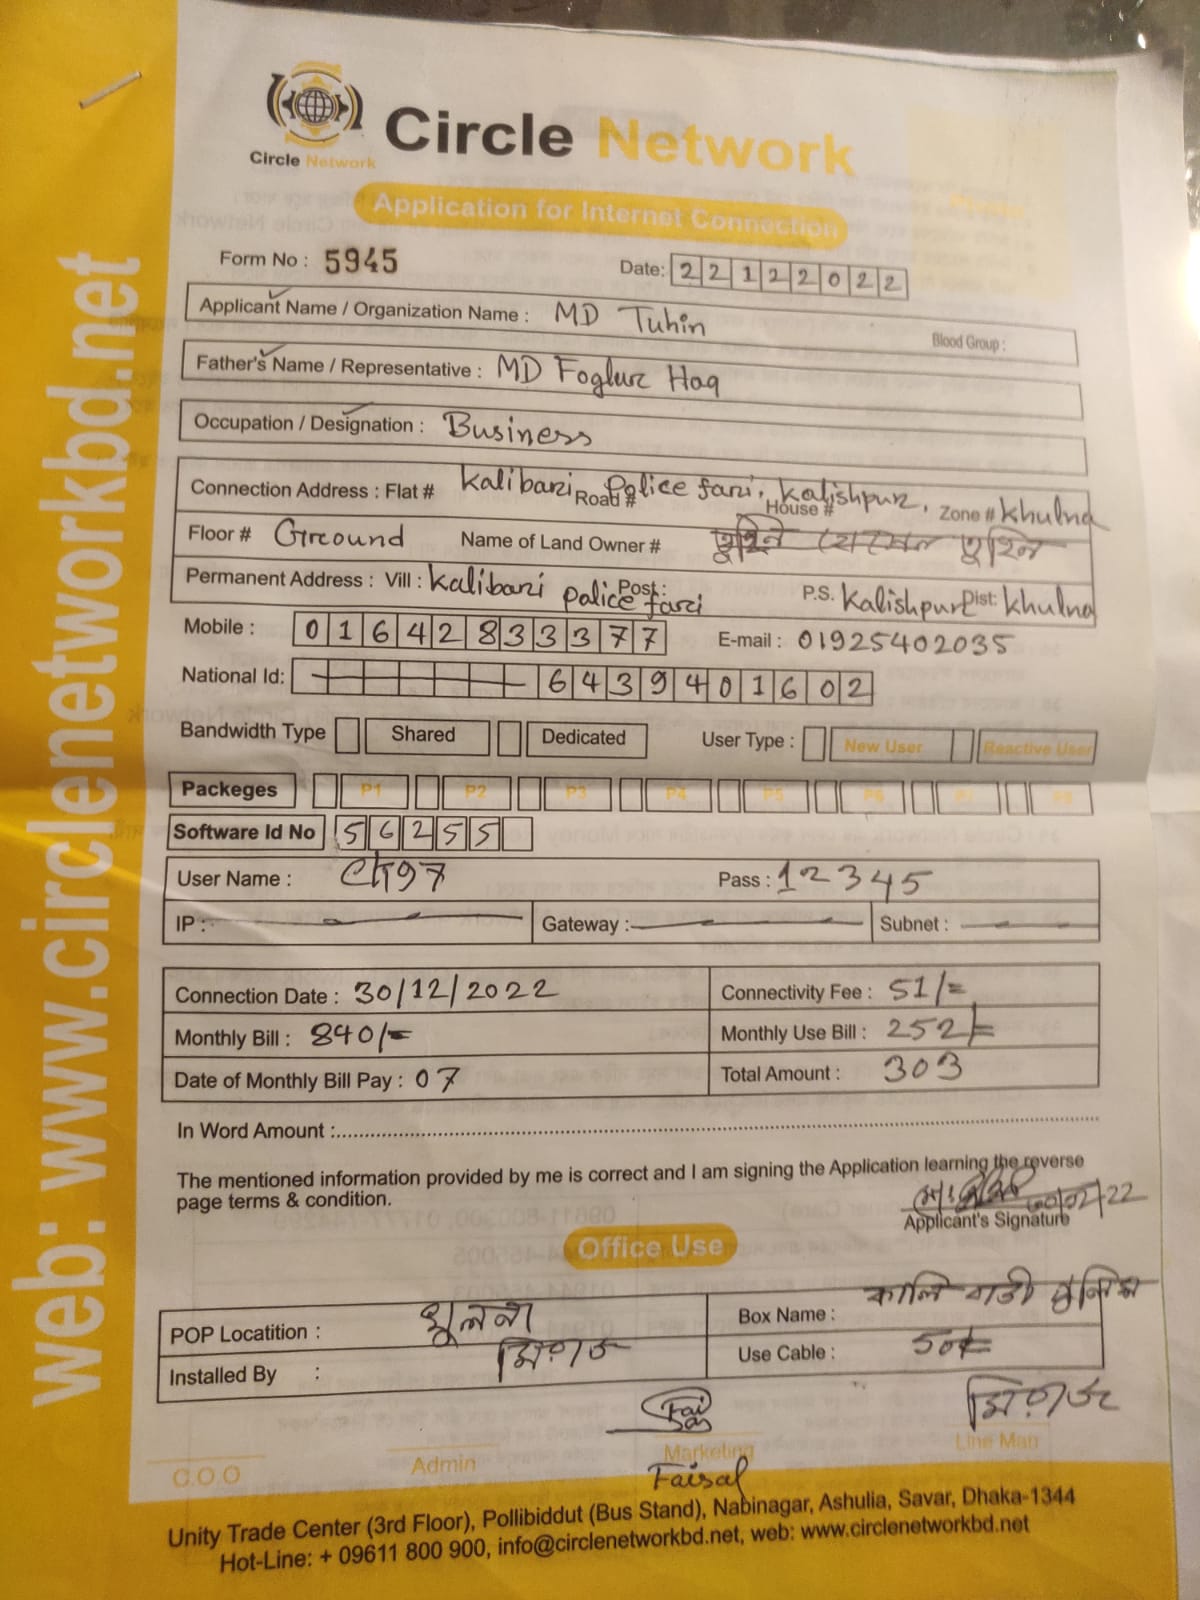 web: www.circlenetworkbd.net
Circle Network
Circle Network
Application for Internet Connection
Form No : 5945 Date: 22122022
Applicant Name / Organization Name : MD Tuhin Blood Group :
Father's Name / Representative : MD Foglur Haq
Occupation / Designation : Business
Connection Address : Flat # Kalibari Road # Police fari, House # Kalishpur, Zone # Khulna
Floor # Ground Name of Land Owner # তুহিন
Permanent Address : Vill : Kalibari Post : police fari P.S. Kalishpur Dist: Khulna
Mobile : 01642833377 E-mail : 01925402035
National Id: 6439401602
Bandwidth Type Shared Dedicated User Type : New User Reactive User
Packeges P1 P2 P3 P4 P5 P6 P7 P8
Software Id No 56255
User Name : Pass : 12345
IP : Gateway : Subnet :
Connection Date : 30/12/2022 Connectivity Fee : 51/=
Monthly Bill : 840/= Monthly Use Bill : 252/=
Date of Monthly Bill Pay : 07 Total Amount : 303
In Word Amount :
The mentioned information provided by me is correct and I am signing the Application learning the reverse
page terms & condition.
Applicant's Signature
Office Use
POP Locatition : খুলনা Box Name : কালি বাড়ী পুলিশ
Installed By : মিরাজ Use Cable :
মিরাজ
C.O.O Admin Marketing Line Man
Faisal
Unity Trade Center (3rd Floor), Pollibiddut (Bus Stand), Nabinagar, Ashulia, Savar, Dhaka-1344
Hot-Line: + 09611 800 900, info@circlenetworkbd.net, web: www.circlenetworkbd.net